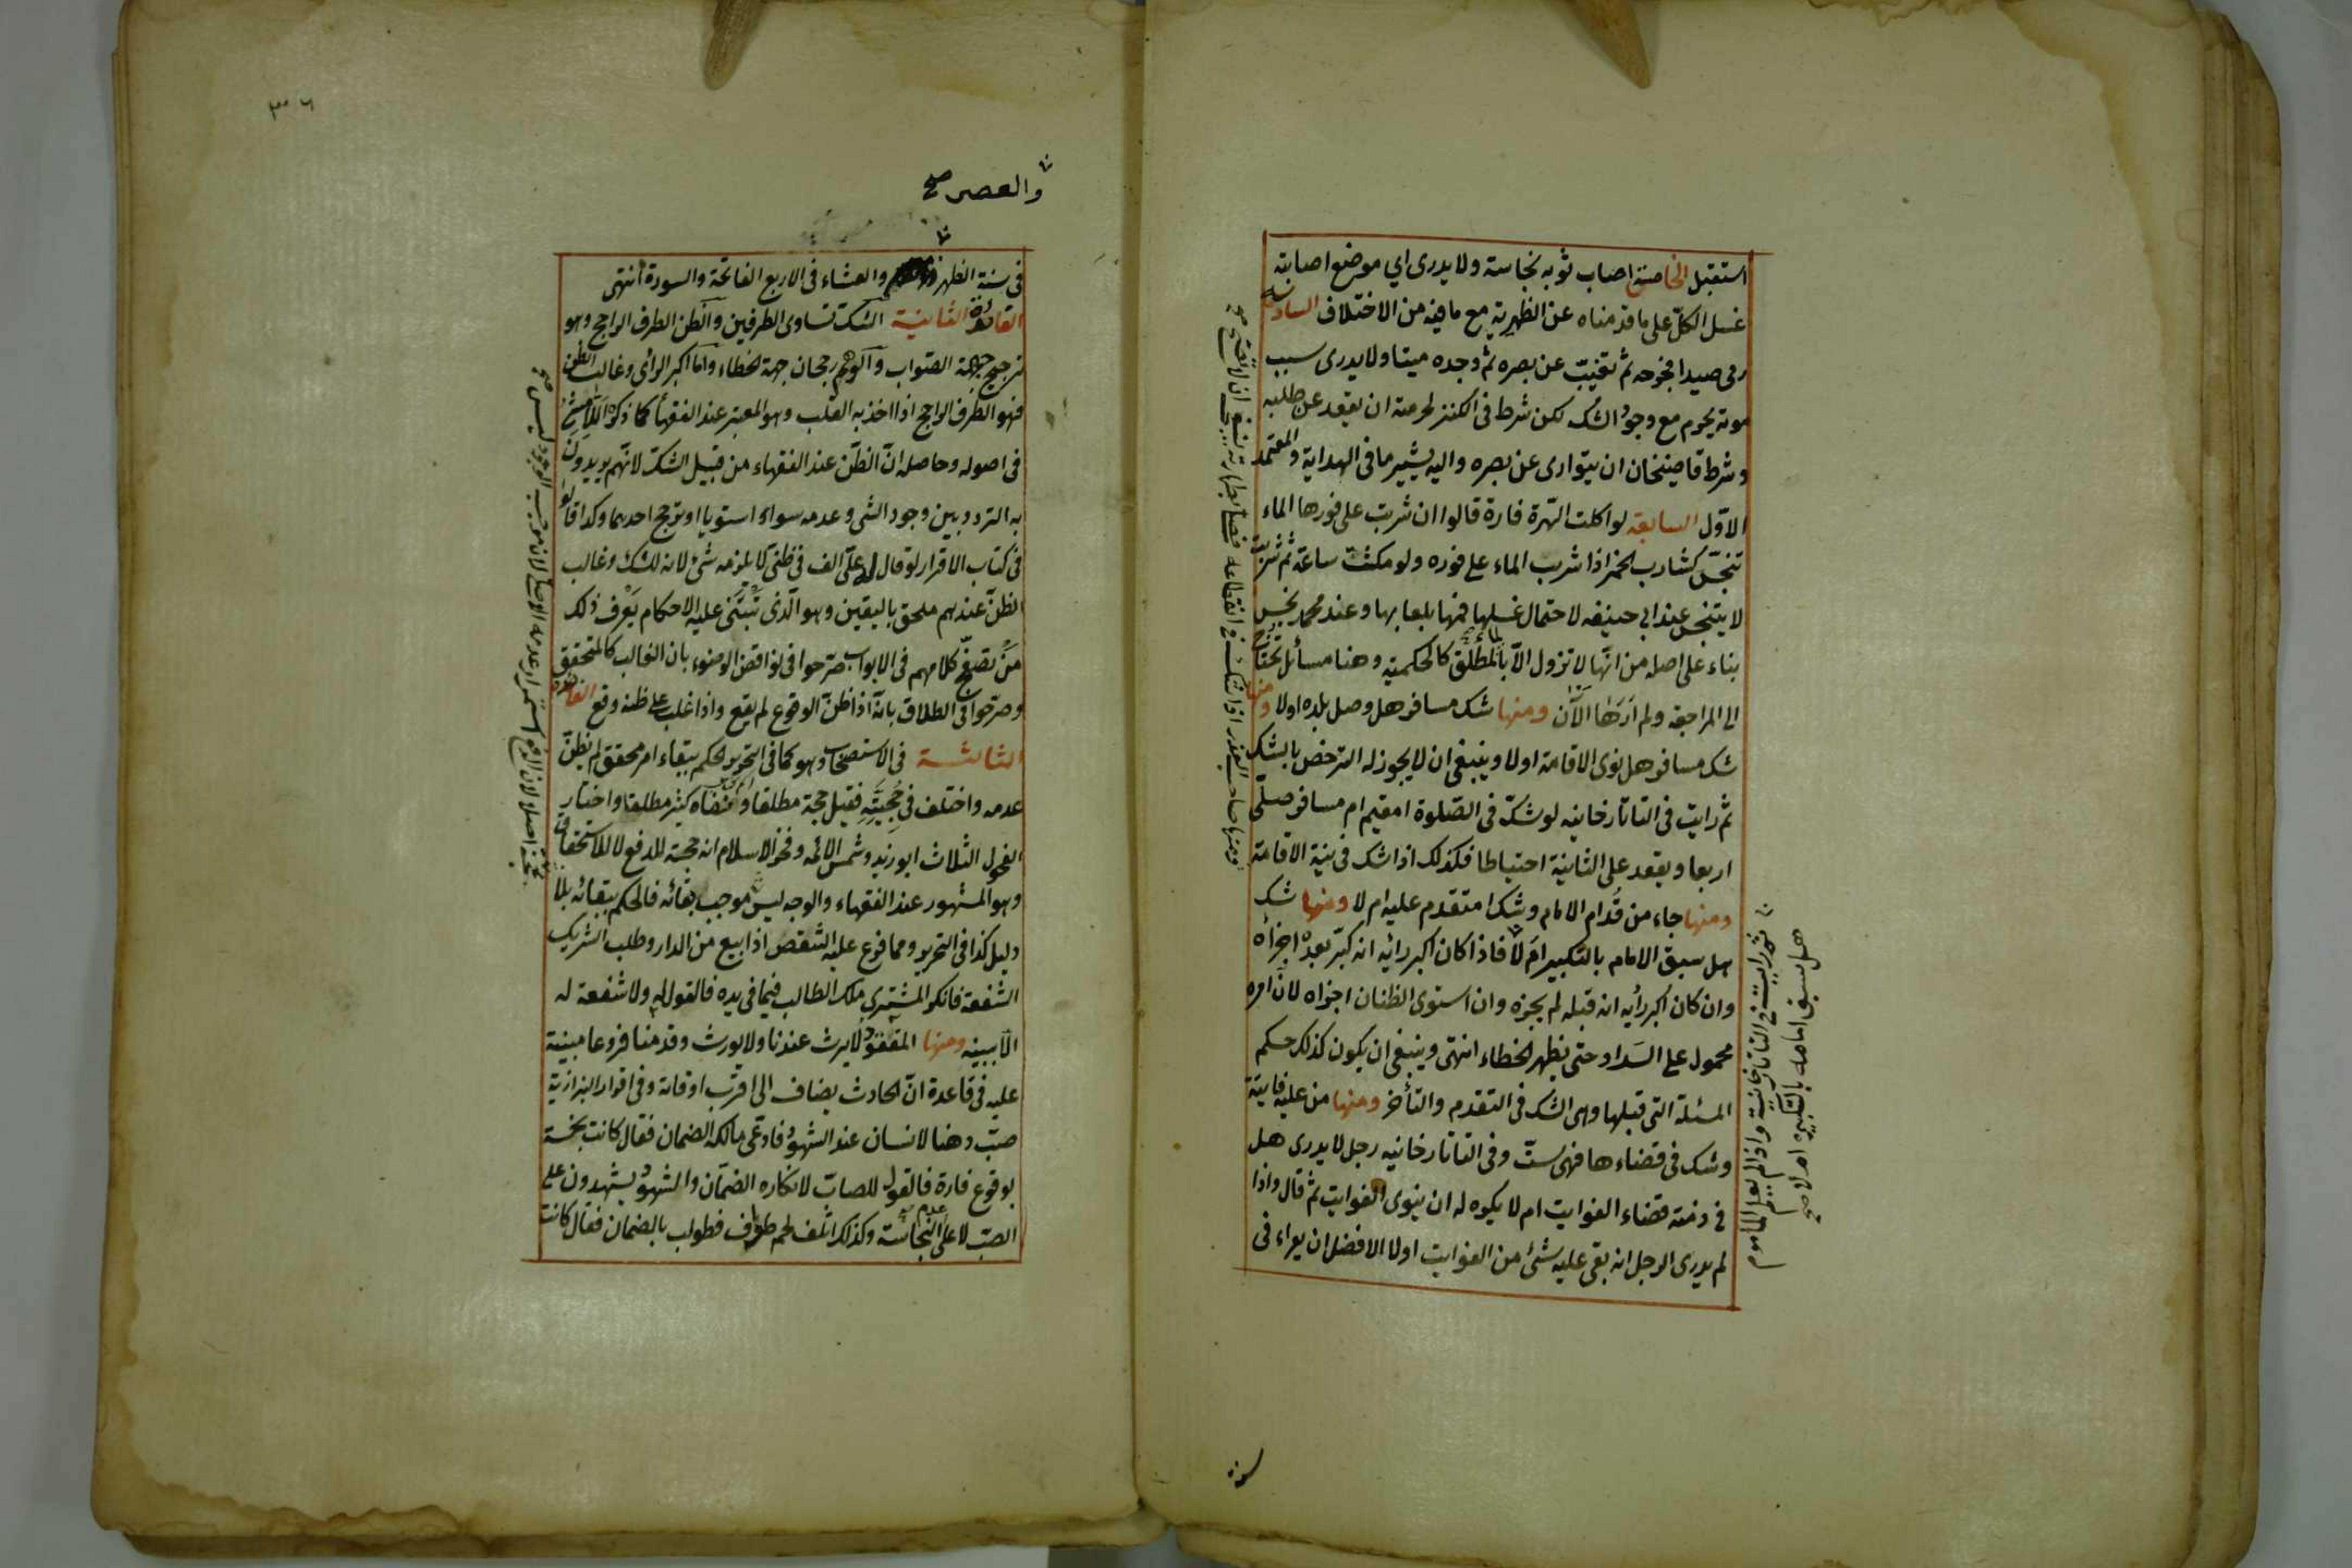 استقبل الخامسة اصاب ثوبه نجاسة ولا يدرى اي موضع اصابته
غسل الكلّ على ما قدمناه عن الظهيرية مع ما فيه من الاختلاف السادسة
رمى صيدا فجرحه ثم تغيّب عن بصره ثم وجده ميتا ولا يدرى سبب
موته يحرم مع وجود الشك لكن شرط فى الكنز لحرمته ان يقعد عن طلبه
وشرط قاضيخان ان يتوارى عن بصره واليه يشير ما فى الهداية والمعتمد
الاوّل السابعة لو اكلت الهرة فارة قالوا ان شربت على فورها الماء
تنجّس كشارب الخمر اذا شرب الماء على فوره ولو مكثت ساعة ثم شربت
لا يتنجس عند ابي حنيفه لاحتمال غسلها فمها بلعابها وعند محمد نجس
بناء على اصله من انّها لا تزول الّا بالماء المطلق كالحكمية وهنا مسائل تحتاج
الى المراجعة ولم ارَها الآن ومنها شك مسافر هل وصل بلده اولا ومنها
شك مسافر هل نوى الاقامة اولا وينبغى ان لا يجوز له الترخص بالشك
ثم رايت فى التاتارخانيه لو شكّ فى الصّلوة امقيم ام مسافر صلّى
اربعا ويقعد على الثانية احتياطا فكذلك اذا شك فى نية الاقامة
ومنها جاء من قُدام الامام وشك امتقدم عليه ام لا ومنها شك
هل سبق الامام بالتكبير ام لا فاذا كان اكبر رائه انه كبّر بعده اجزأه
وان كان اكبر رأيه انه قبله لم يجزه وان استوى الظنان اجزاه لانّ امره
محمول على السَداد حتى يظهر الخطاء انتهى وينبغى ان يكون كذلك حكم
المسئلة التى قبلها وهى الشك فى التقدم والتأخر ومنها من عليه فايتة
وشك فى قضاءها فهى ستّ وفى التاتارخانيه رجل لا يدرى هل
فى ذمته قضاء الفوايت ام لا يكره له ان ينوى الفوايت ثم قال واذا
لم يدرى الرجل انه بقى عليه شئ من الفوايت اولا الافضل ان يقراء فى
ثم رايت فى التاتارخانية واذا لم يعلم الماموم
هل سبق امامه بالتكبيرة ام لا صح
ومنها صاحب العذر اذا شك فى انقطاعه فصلى بطهارته ينبغى ان لا تصح صح
٣٠٦
والعصر صح
فى سنة الظهر والعشاء فى الاربع الفاتحة والسورة انتهى
الفائدة الثانية الشك تساوى الطرفين والظن الطرف الراجح وهو
ترجيح جهة الصّواب والوهم رجحان جهة الخطاء واما اكبر الرائى وغالب الظن
فهو الطرف الراجح اذا اخذ به القلب وهو المعتبر عند الفقهأ كما ذكره اللامشى
فى اصوله وحاصله انّ الظنّ عند الفقهاء من قبيل الشكّ لانّهم يريدون
به التردد بين وجود الشى وعدمه سواء استويا او ترجح احدهما وكذا قالوا
فى كتاب الاقرار لو قال له علّى الف فى ظنى لا يلزمه شئ لانه للشك وغالب
الظنّ عندهم ملحق باليقين وهو الّذى تبتنى عليه الاحكام يعرف ذلك
من تصفّح كلامهم فى الابواب صرّحوا فى نواقض الوضوء بان الغالب كالمتحقق
وصرّحوا فى الطلاق بانّه اذا ظنّ الوقوع لم يقع واذا غلب على ظنه وقع الفائدة
الثالثة فى الاستصحاب وهو كما فى التحرير الحكم ببقاء امر محقق لم يظنّ
عدمه واختلف فى حُجيتِه فقيل حجة مطلقا ونفاه كثير مطلقا واختار
الفحول الثلاث ابو زيد وشمس الائمه وفخر الاسلام انه حجة للدفع لا للاستحقاق
وهو المشهور عند الفقهاء والوجه ليس موجب بقائه فالحكم ببقائه بلا
دليل كذا فى التحرير ومما فرع عليه الشقص اذا بيع من الدار وطلب الشريك
الشفعة فانكر المشترى ملك الطالب فيما فى يده فالقول له ولا شفعة له
الّا ببينه ومنها المفقود لا يرث عندنا ولا يورث وقد منا فروعا مبنية
عليه فى قاعدة انّ الحادث يضاف الى اقرب اوقاته وفى اقرار البزازية
صبّ دهنا لانسان عند الشهود فادعّى مالكه الضمان فقال كانت نجسة
بوقوع فارة فالقول للصابّ لانكاره الضمان والشهود يشهدون على
الصبّ لا على عدم النجاسة وكذلك اتلف لحم طواف فطولب بالضمان فقال كانت